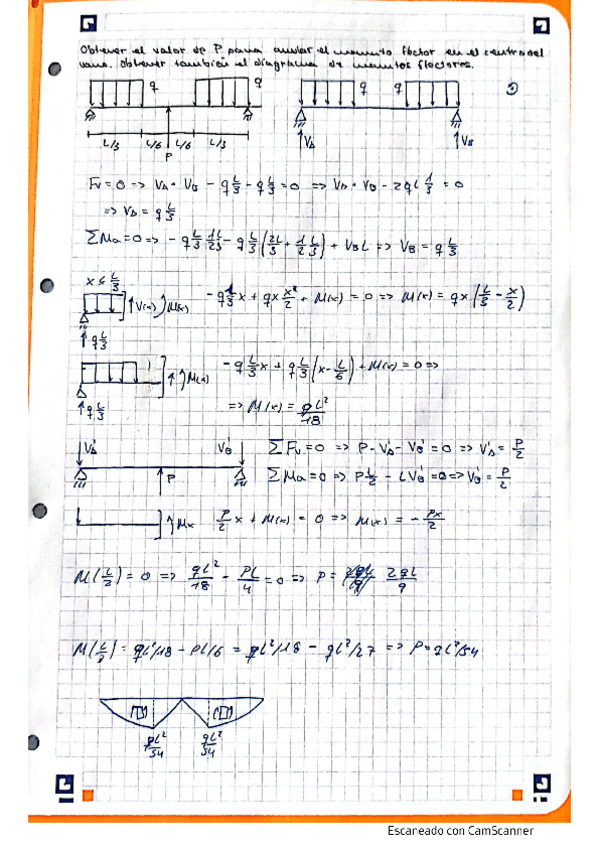 Obtener el valor de P para anular el momento flector en el centro del
vano. Obtener también el diagrama de momentos flectores.
q q q
L/3 L/6 L/6 L/3
P
V_A V_B
F_V = 0 => V_A + V_B - q L/3 - q L/3 = 0 => V_A + V_B - 2qL 1/3 = 0
=> V_A = q L/3
ΣM_a = 0 => - q L/3 1/2 L/3 - q L/3 (2L/3 + 1/2 L/3) + V_B L => V_B = q L/3
x ≤ L/3
V(x) M(x)
q L/3
- q L/3 x + qx x/2 + M(x) = 0 => M(x) = qx (L/3 - x/2)
M(x)
q L/3
- q L/3 x + q L/3 (x - L/6) + M(x) = 0 =>
=> M(x) = qL²/18
V_A' V_B'
P
ΣF_V = 0 => P - V_A' - V_B' = 0 => V_A' = P/2
ΣM_a = 0 => P L/2 - L V_B' = 0 => V_B' = P/2
Mx
P/2 x + M(x) = 0 => M(x) = - Px/2
M(L/2) = 0 => qL²/18 - PL/4 = 0 => P = 2qL/9
M(L/3) = qL²/18 - PL/6 = qL²/18 - qL²/27 => P = qL²/54
qL²/54 qL²/54
Escaneado con CamScanner